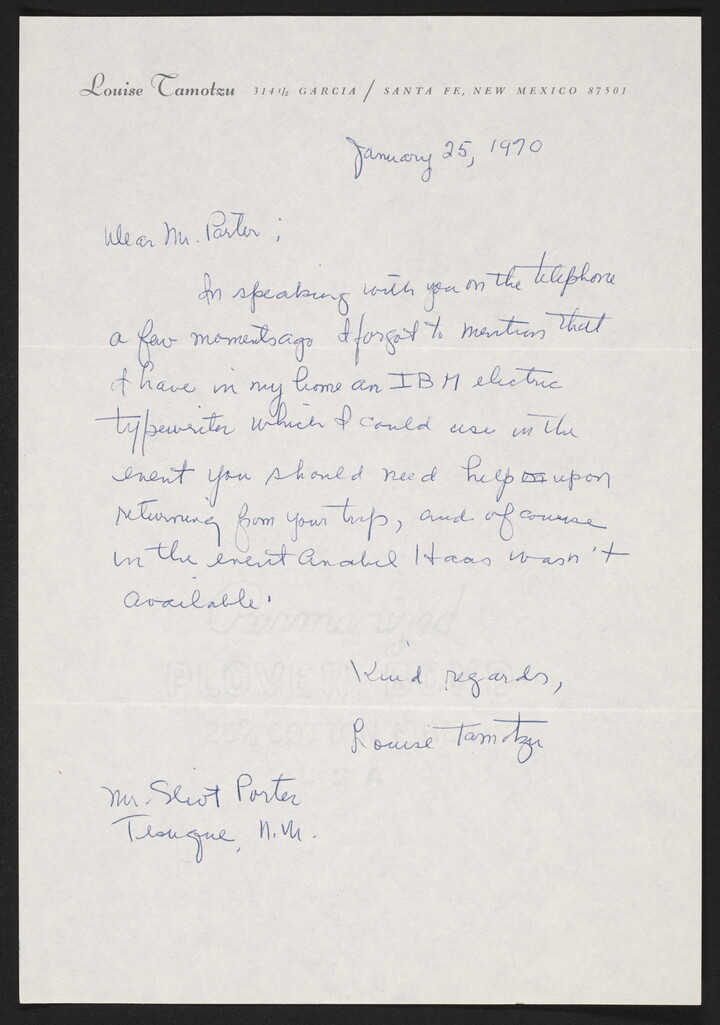 Louise Tamotzu 314½ GARCIA / SANTA FE, NEW MEXICO 87501
January 25, 1970
Dear Mr. Porter;
In speaking with you on the telephone
a few moments ago I forgot to mention that
I have in my home an IBM electric
typewriter which I could use in the
event you should need help upon
returning from your trip, and of course
in the event Anabel Haas wasn't
available.
Kind regards,
Louise Tamotzu
Mr. Eliot Porter
Tesuque, N.M.
Permanized
PLOVER BOND
25% COTTON
U S A